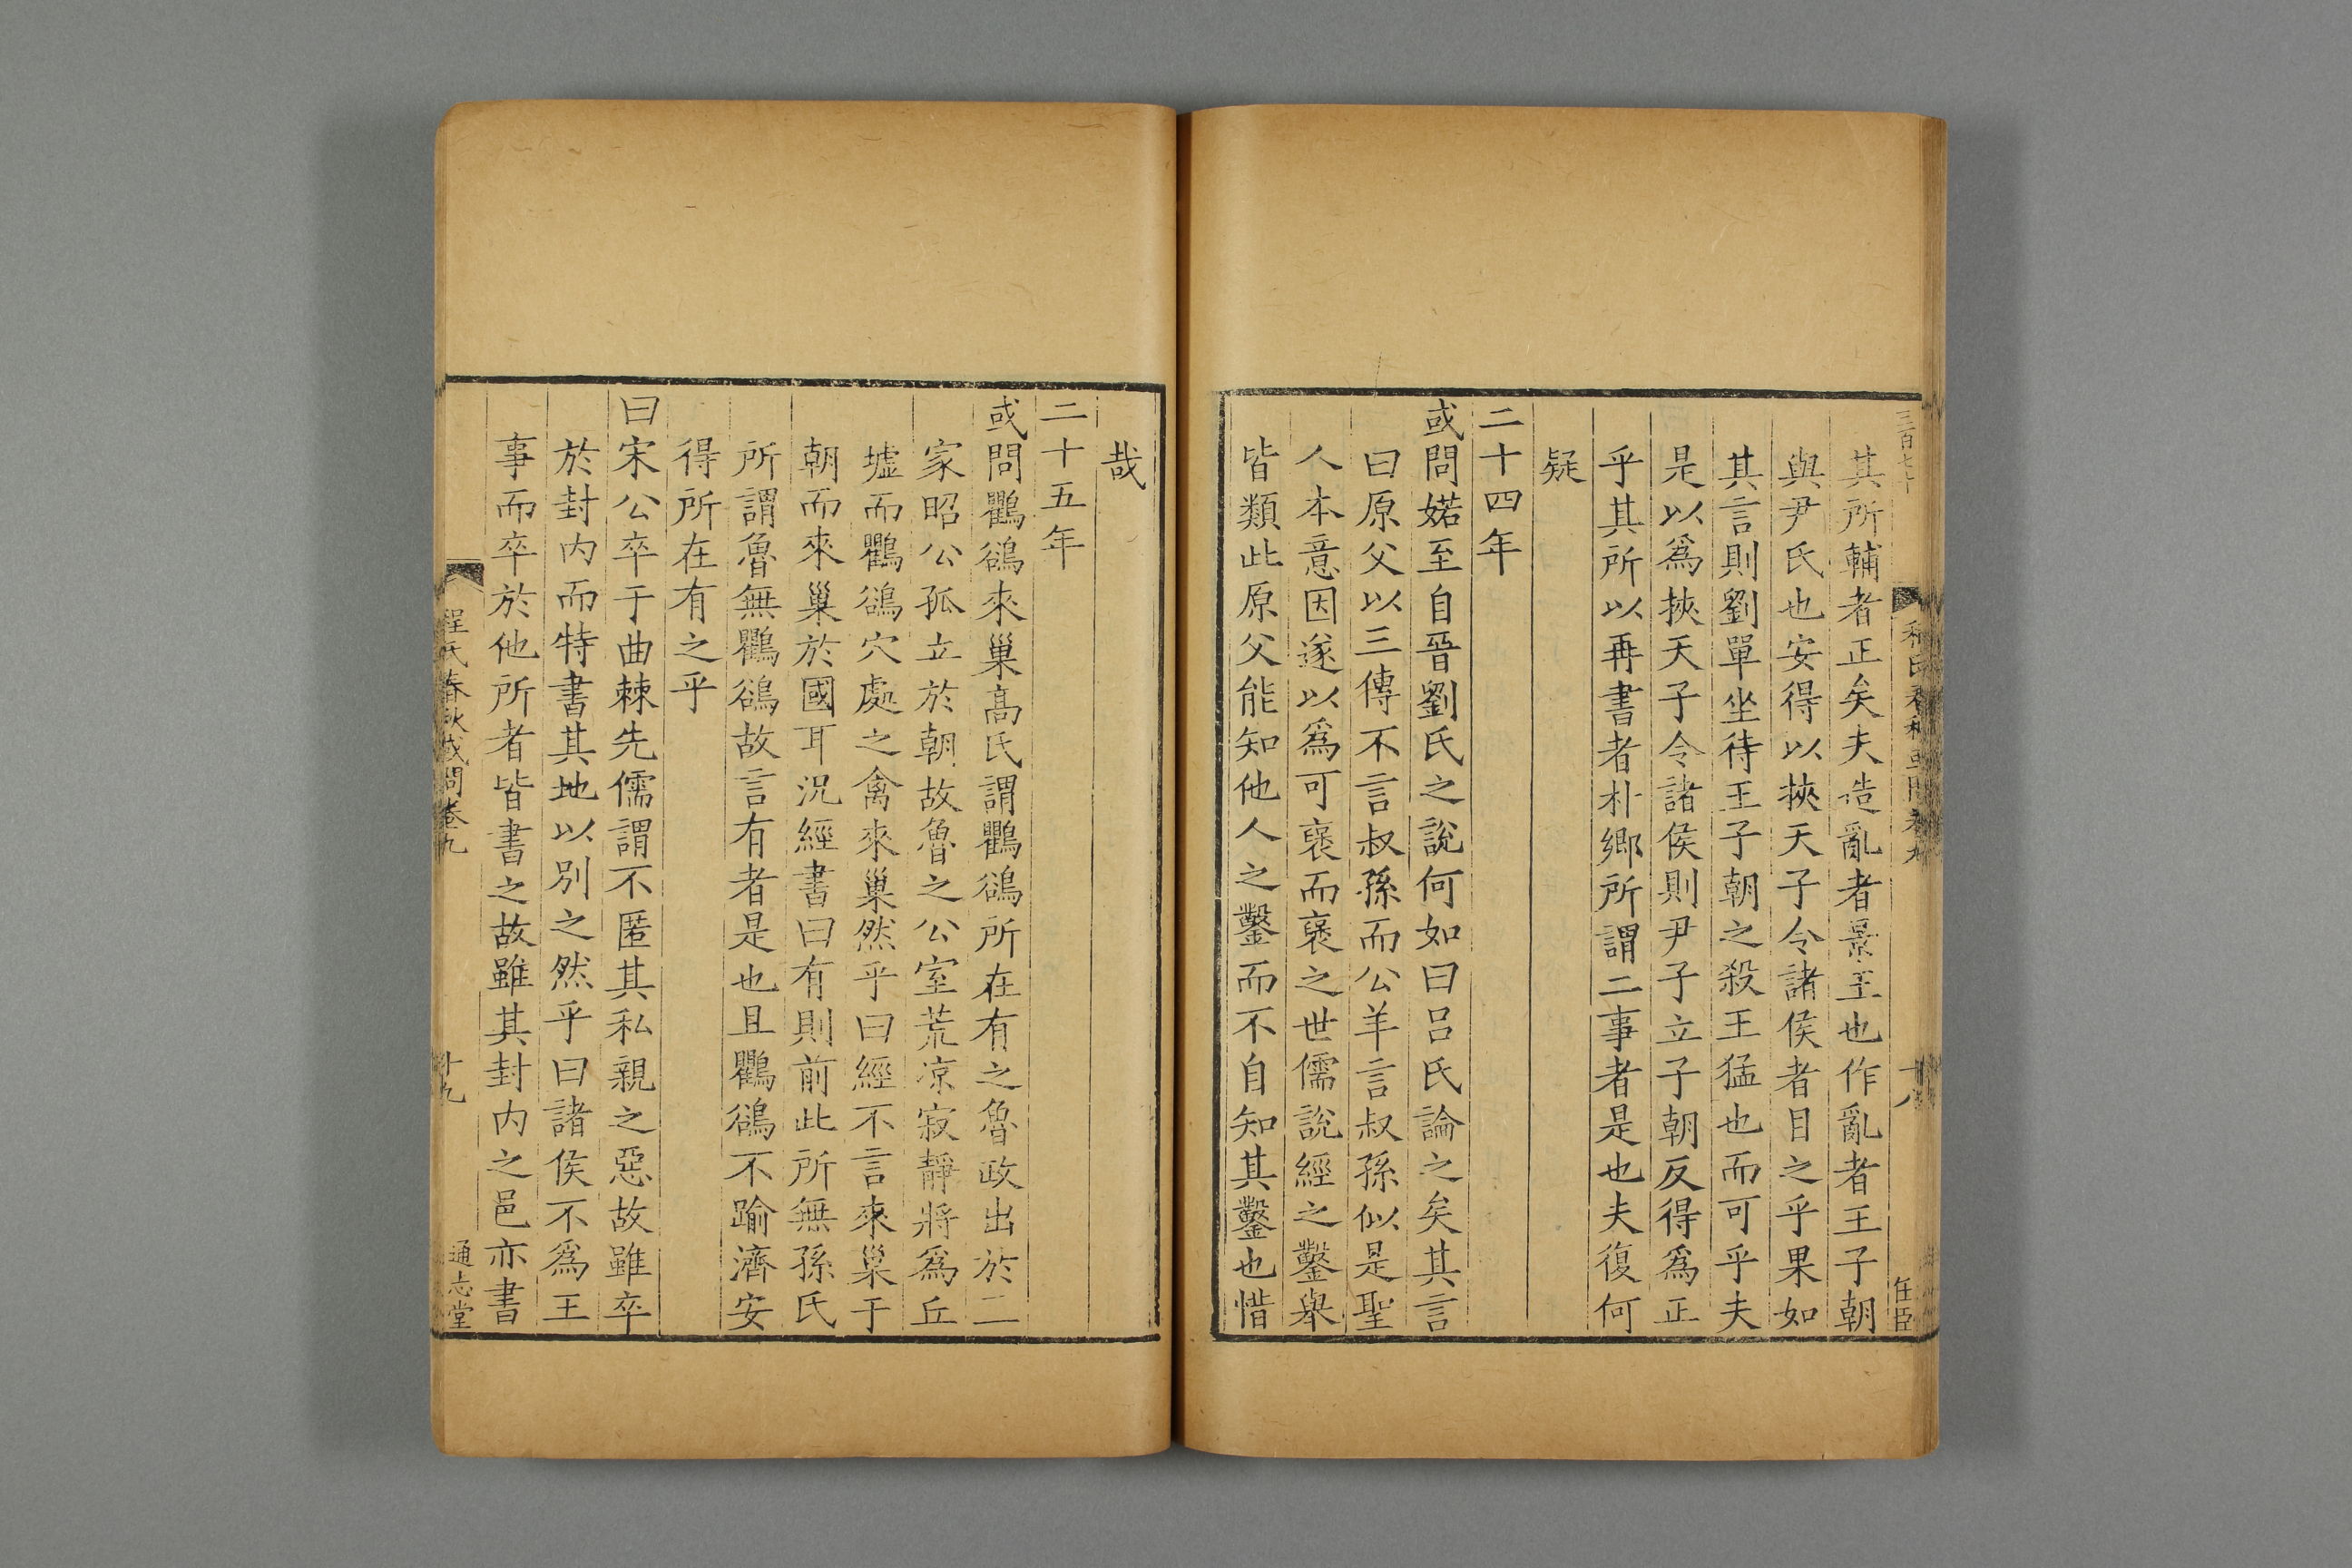 三百七十
程氏春秋或問卷九
十八
任臣
其所輔者正矣夫造亂者景王也作亂者王子朝
與尹氏也安得以挾天子令諸侯者目之乎果如
其言則劉單坐待王子朝之殺王猛也而可乎夫
是以爲挾天子令諸侯則尹子立子朝反得爲正
乎其所以再書者朴鄉所謂二事者是也夫復何
疑
二十四年
或問婼至自晉劉氏之說何如曰呂氏論之矣其言
曰原父以三傳不言叔孫而公羊言叔孫似是聖
人本意因遂以爲可襃而襃之世儒說經之鑿舉
皆類此原父能知他人之鑿而不自知其鑿也惜
哉
二十五年
或問鸜鵒來巢高氏謂鸜鵒所在有之魯政出於二
家昭公孤立於朝故魯之公室荒凉寂靜將爲丘
墟而鸜鵒穴處之禽來巢然乎曰經不言來巢于
朝而來巢於國耳况經書曰有則前此所無孫氏
所謂魯無鸜鵒故言有者是也且鸜鵒不踰濟安
得所在有之乎
曰宋公卒于曲棘先儒謂不匿其私親之惡故雖卒
於封内而特書其地以別之然乎曰諸侯不爲王
事而卒於他所者皆書之故雖其封内之邑亦書
程氏春秋或問卷九
十九
通志堂